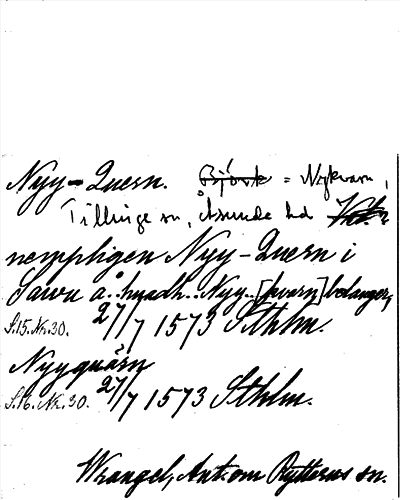 Nyy-Quern. Björk = Nykvarn,
Tillinge sn, Åsunda hd
nempligen Nyy-Quern i
Sawu å.. huadh.. Nyy.. [kvarn] belanger,
S.15. Nr. 30. 27/7 1573 Sthlm.
Nyyquärn
S.16. Nr. 30. 27/7 1573 Sthlm.
Wrangel, Ant. om Rytterns sn.